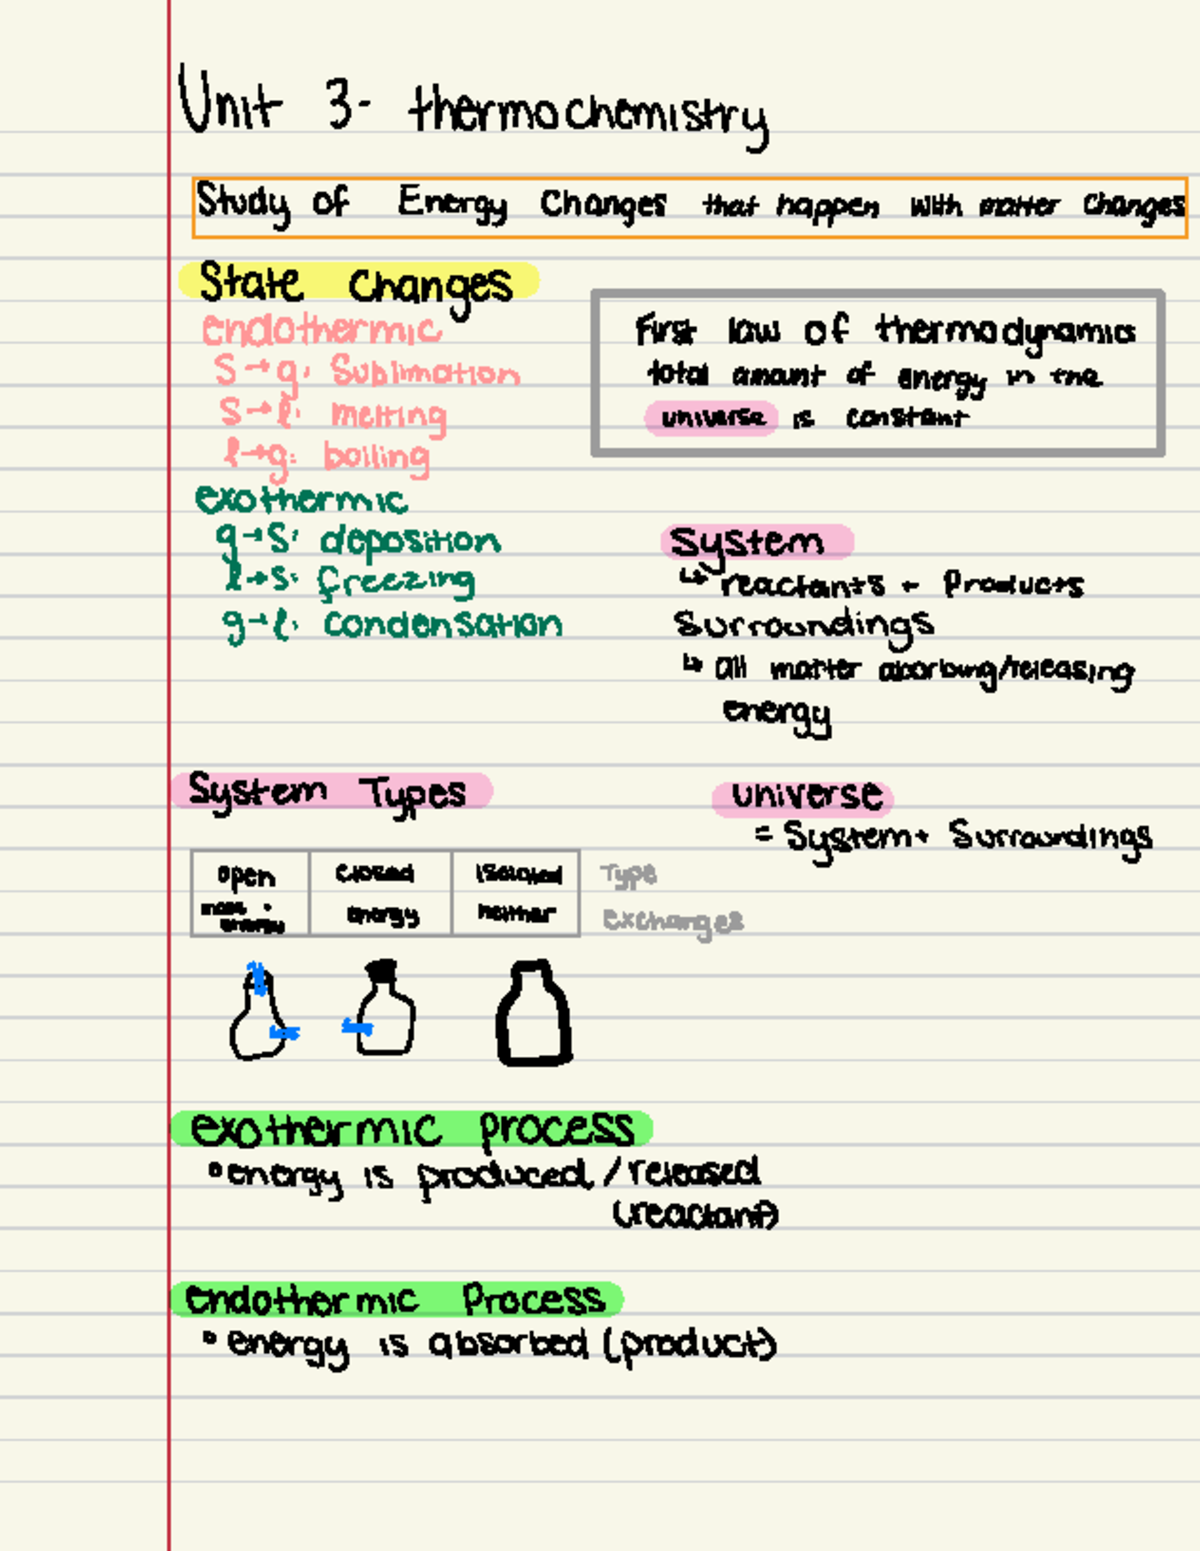 Unit 3- thermochemistry
Study of Energy Changes that happen with matter changes
State Changes
endothermic
s→g: Sublimation
s→l: melting
l→g: boiling
exothermic
g→s: deposition
l→s: freezing
g→l: condensation
First law of thermodynamics
total amount of energy in the
universe is constant
System
↳ reactants + Products
Surroundings
↳ all matter aborbing/releasing
energy
System Types
universe
= System + Surroundings
open closed isolated Type
mass + energy energy neither exchanges
exothermic process
• energy is produced / released
(reactant)
endothermic Process
• energy is absorbed (product)